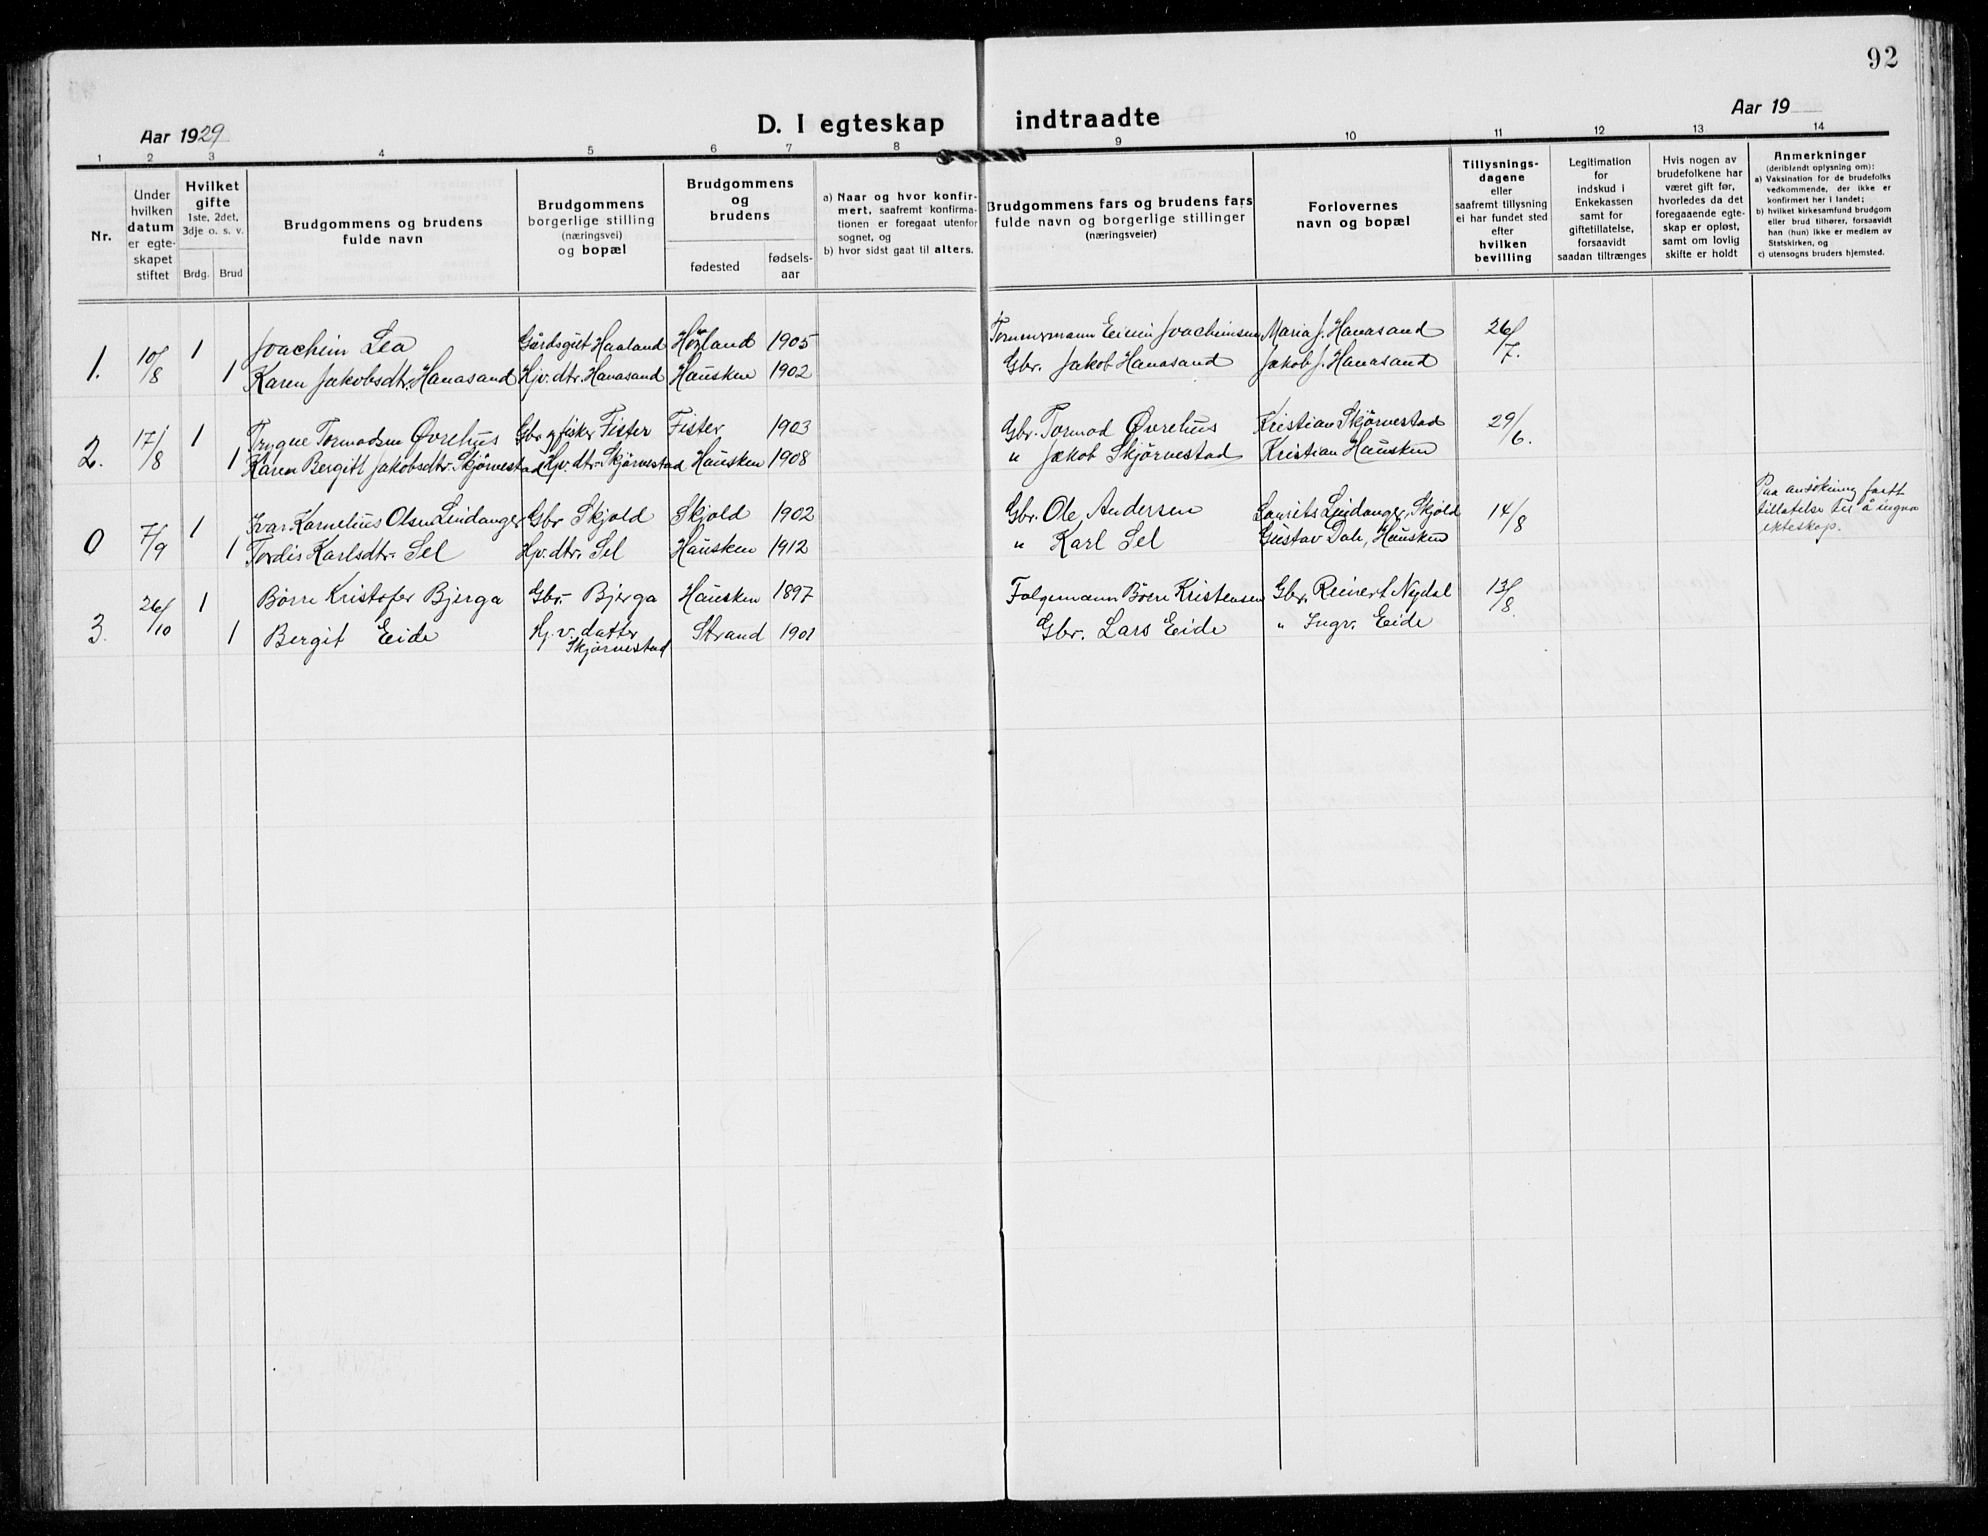 92
Aar 1929
D. I egteskap indtraadte
Aar 19
1 2 3 4 5 6 7 8 9 10 11 12 13 14
Nr.
Under
hvilken
datum
er egte-
skapet
stiftet
Hvilket
gifte
1ste, 2det,
3dje o. s. v.
Brdg. Brud
Brudgommens og brudens
fulde navn
Brudgommens
borgerlige stilling
(næringsvei)
og bopæl
Brudgommens
og
brudens
fødested
fødsels-
aar
a) Naar og hvor konfir-
mert, saafremt konfirma-
tionen er foregaat utenfor
sognet, og
b) hvor sidst gaat til alters.
Brudgommens fars og brudens fars
fulde navn og borgerlige stillinger
(næringsveier)
Forlovernes
navn og bopæl
Tillysnings-
dagene
eller
saafremt tillysning
ei har fundet sted
efter
hvilken
bevilling
Legitimation
for
indskud i
Enkekassen
samt for
giftetillatelse,
forsaavidt
saadan tiltrænges
Hvis nogen av
brudefolkene har
været gift før,
hvorledes da det
foregaaende egte-
skap er opløst,
samt om lovlig
skifte er holdt
Anmerkninger
(deriblandt oplysning om):
a) Vaksination for de brudefolks
vedkommende, der ikke er
konfirmert her i landet;
b) hvilket kirkesamfund brudgom
eller brud tilhører, forsaavidt
han (hun) ikke er medlem av
Statskirken, og
c) utensogns bruders hjemsted.
1. 10/8 1 Joachim Lea Gårdsgut Haaland Høland 1905 Tømmermann Joachimsen Maria J. Hanasand 26/7.
1 Karen Jakobsdtr. Hanasand Hjv. dtr. Hanasand Hausken 1902 Gbr. Jakob Hanasand Jakob J. Hanasand
2. 17/8 1 Trygve Tormodsen Øvrehus Gbr. og fisker Fister Fister 1903 Gbr. Tormod Øvrehus Kristian Skjørvestad 29/6.
1 Karen Bergitt Jakobsdtr. Skjørvestad Hjv. dtr. Skjørvestad Hausken 1908 " Jakob Skjørvestad Kristian Hausken
0 7/9 1 Ivar Kornelius Olsen Lindanger Gbr Skjold Skjold 1902 Gbr. Ole Andersen Laurits Lindanger, Skjold 14/8 Paa ansökning faatt
tillatelse til å ingaa
ekteskap.
1 Tordis Karlsdtr. Sel Hjv. dtr. Sel Hausken 1912 " Karl Sel Gustav Dale, Hausken
3. 26/10 1 Børre Kristofer Bjerga Gbr. Bjerga Hausken 1897 Folgemann Børre Kristensen Gbr. Reinert Nædal 13/8.
1 Bergit Eide Hj. v. datter Strand 1901 Gbr. Lars Eide " Ingv. Eide
Skjørvestad